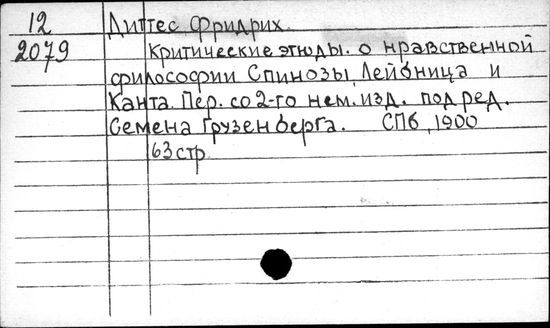 12 Диттес Фридрих.
2079 Критические этюды. о нравственной
философии Спинозы, Лейбница и
Канта. Пер. со 2-го нем. изд. под ред.
Семена Грузенберга. СПб, 1900
63 стр